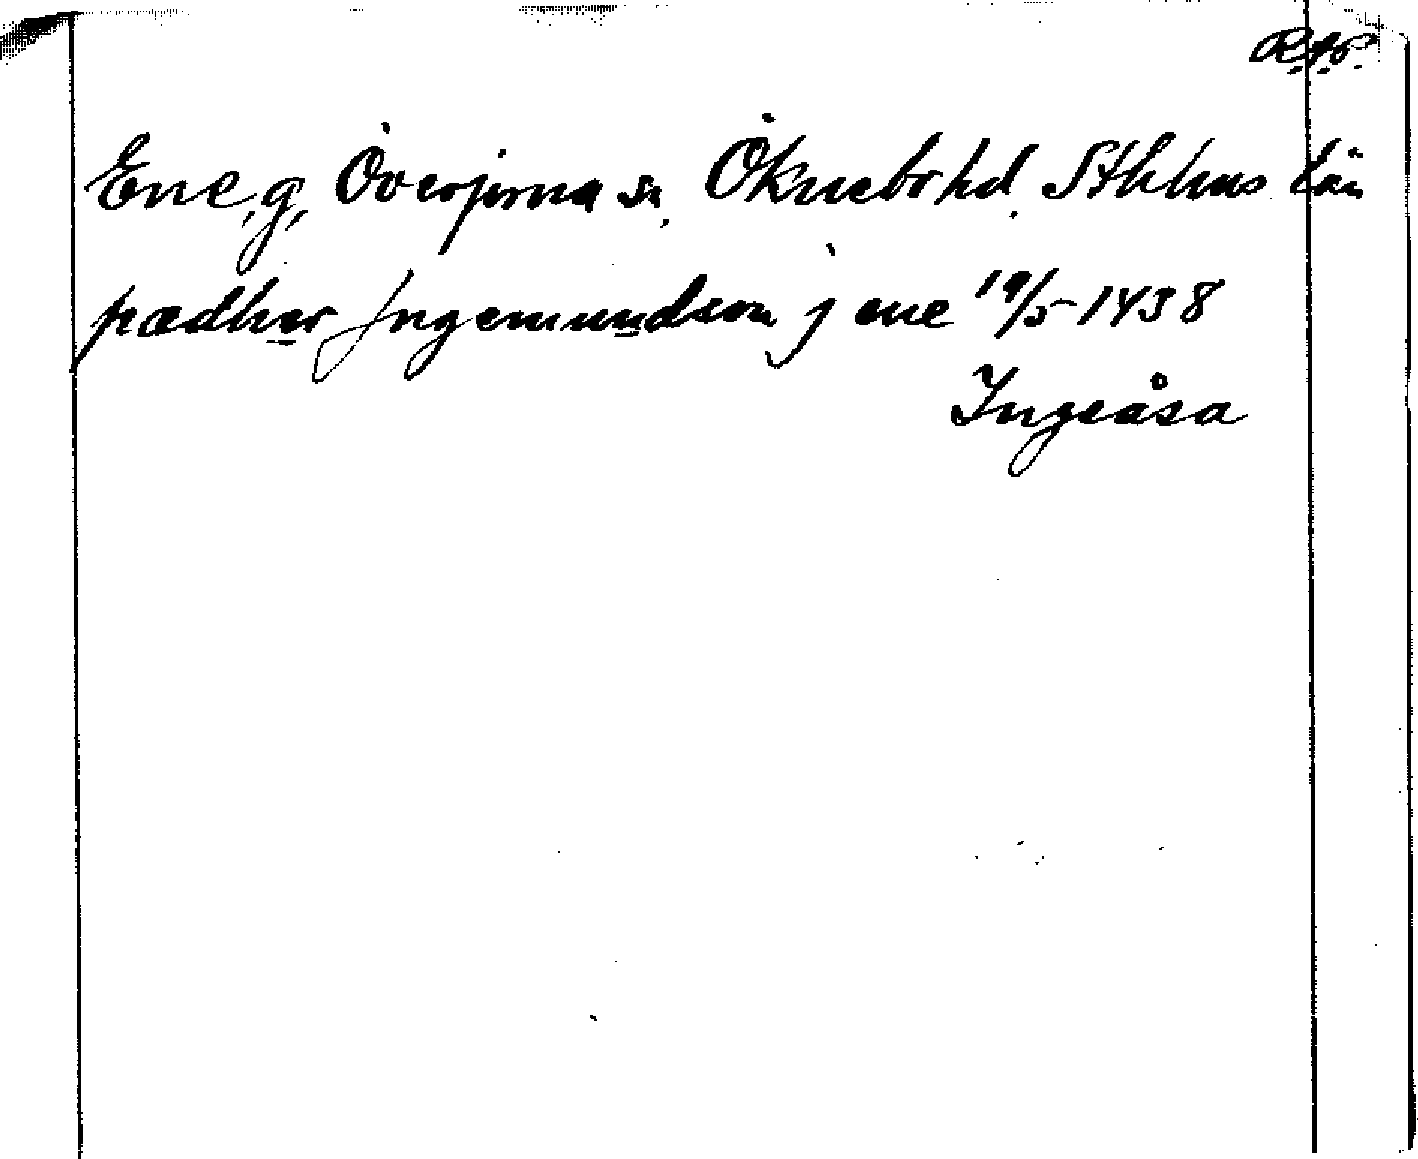 R.A.P.
Ene, g, Överjärna sn, Öknebo hd. Sthlms län
pædher Jngemundson j ene 19/5 1438
Ingeåsa